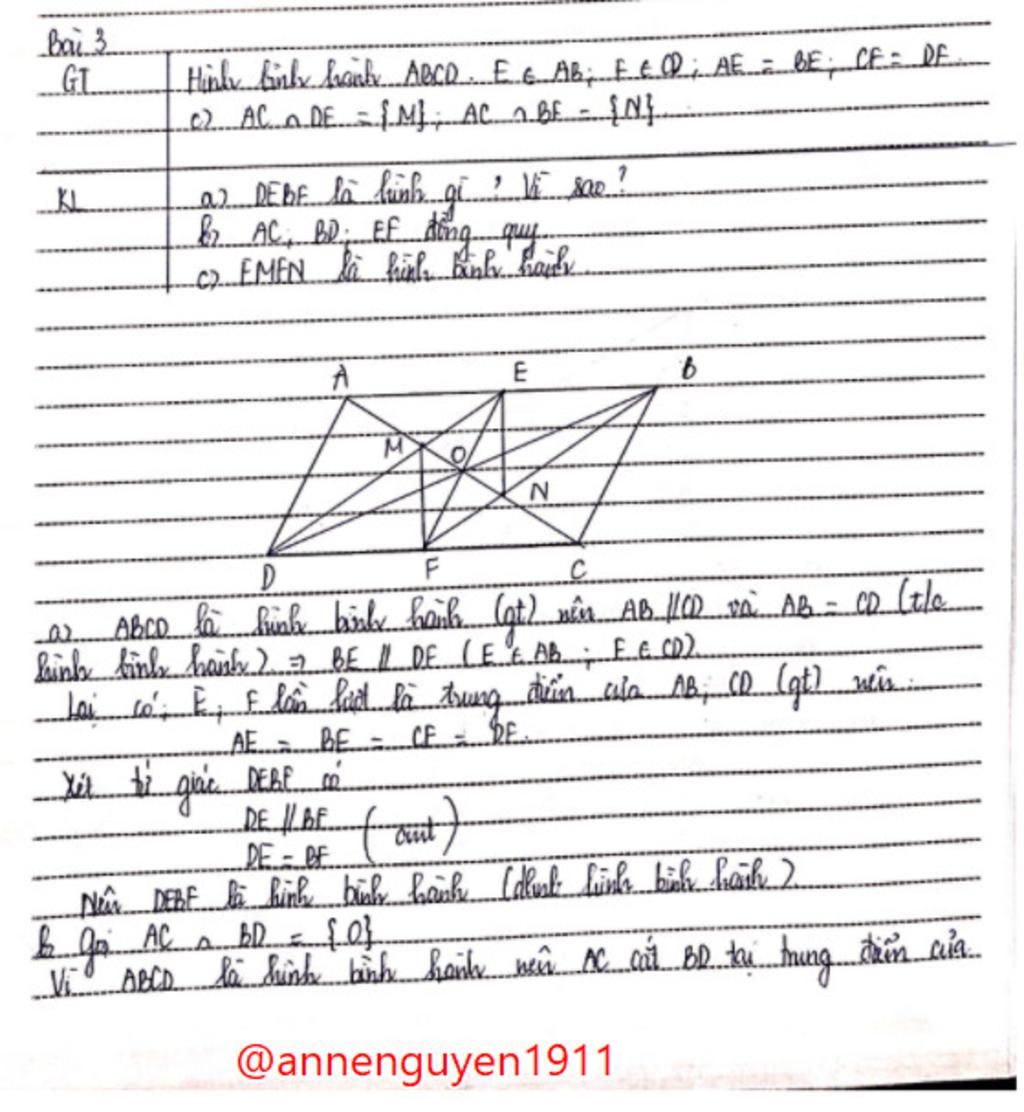 Bài 3
GT Hình bình hành ABCD. E ∈ AB; F ∈ CD; AE = BE; CF = DF.
c) AC ∩ DE = {M}; AC ∩ BF = {N}
KL a) DEBF là hình gì? Vì sao?
b) AC; BD; EF đồng quy
c) EMFN là hình bình hành.
A E B
M O
N
D F C
a) ABCD là hình bình hành (gt) nên AB // CD và AB = CD (t/c
hình bình hành) ⇒ BE // DF (E ∈ AB; F ∈ CD)
Lại có; E; F lần lượt là trung điểm của AB; CD (gt) nên:
AE = BE = CF = DF.
Xét tứ giác DEBF có
DE // BF
(cmt)
DE = BF
Nên DEBF là hình bình hành (dhnb hình bình hành)
b Gọi AC ∩ BD = {O}
Vì ABCD là hình bình hành nên AC cắt BD tại trung điểm của
@annenguyen1911